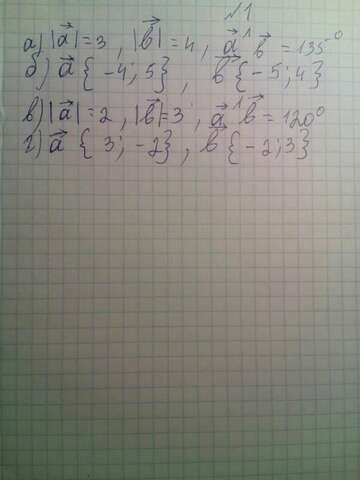 √1
а) |a⃗| = 3 , |b⃗| = 4 , a⃗ ^ b⃗ = 135°
б) a⃗ { -4; 5} , b⃗ { -5; 4}
в) |a⃗| = 2 , |b⃗| = 3 , a⃗ ^ b⃗ = 120°
г) a⃗ { 3; -2} , b⃗ { -2; 3}